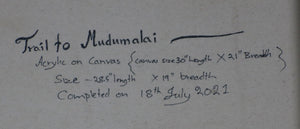 Trail to Mudumalai
Acrylic on Canvas {Canvas size 30" Length X 21" Breadth
Size - 28.5" length X 19" breadth
Completed on 18th July 2021